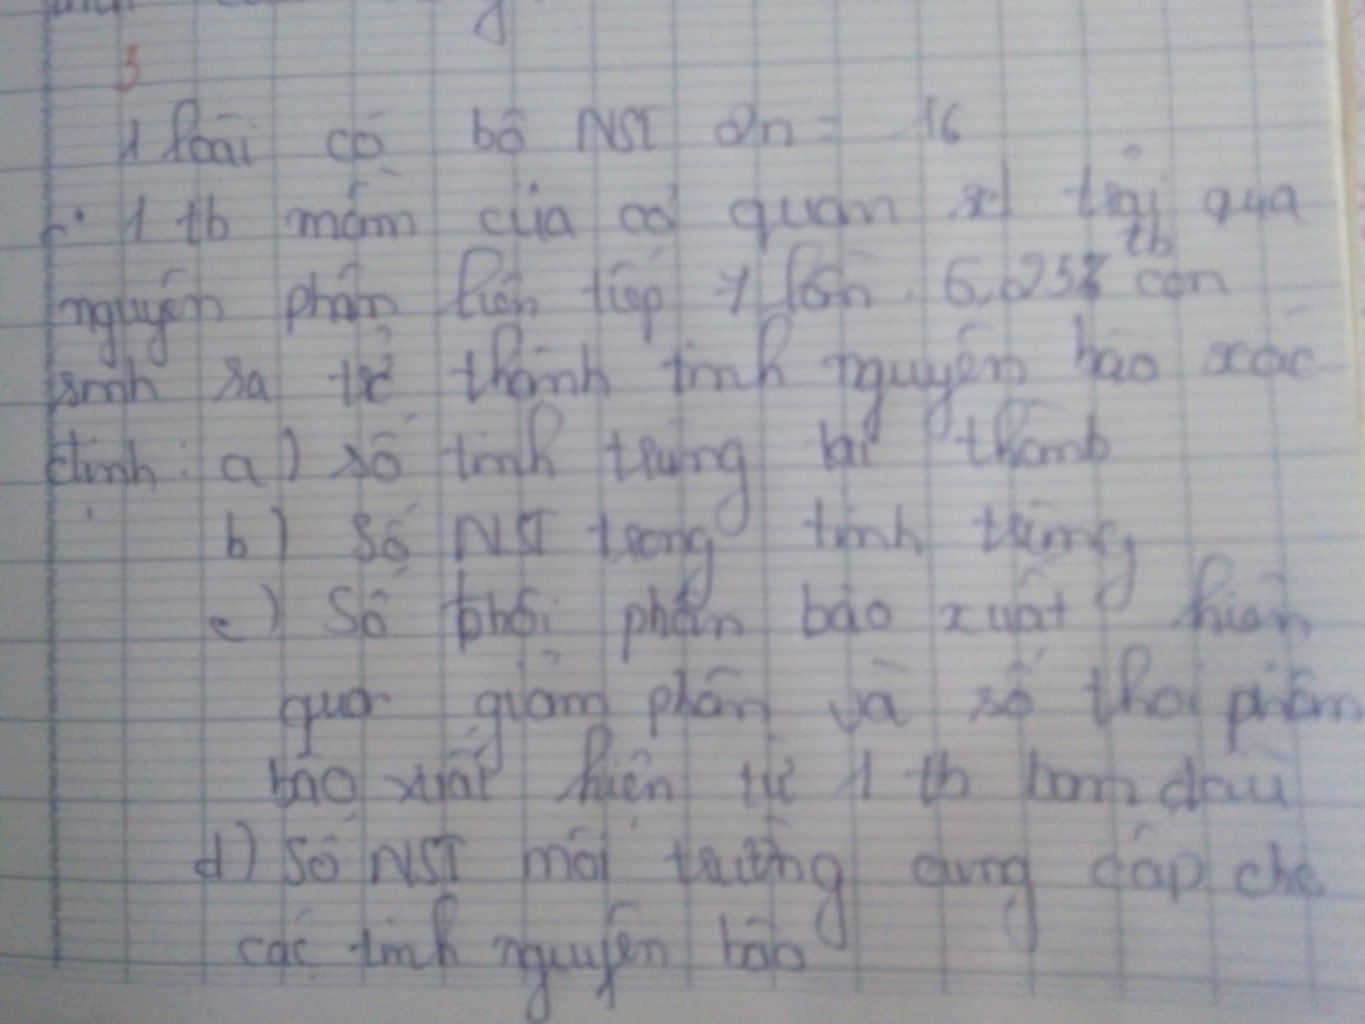 3
1 loài có bộ NST 2n = 16
1 tb mầm của cơ quan sd trải qua
tb
nguyên phân liên tiếp 7 lần. 6,25% con
sinh ra trở thành tinh nguyên bào xác
định: a) số tinh trùng tạo thành
b) Số NST trong tinh trùng
c) Số thôi phân bào xuất hiện
qua giảm phân và số thoi phân
bào xuất hiện từ 1 tb ban đầu
d) Số NST môi trường cung cấp cho
các tinh nguyên bào